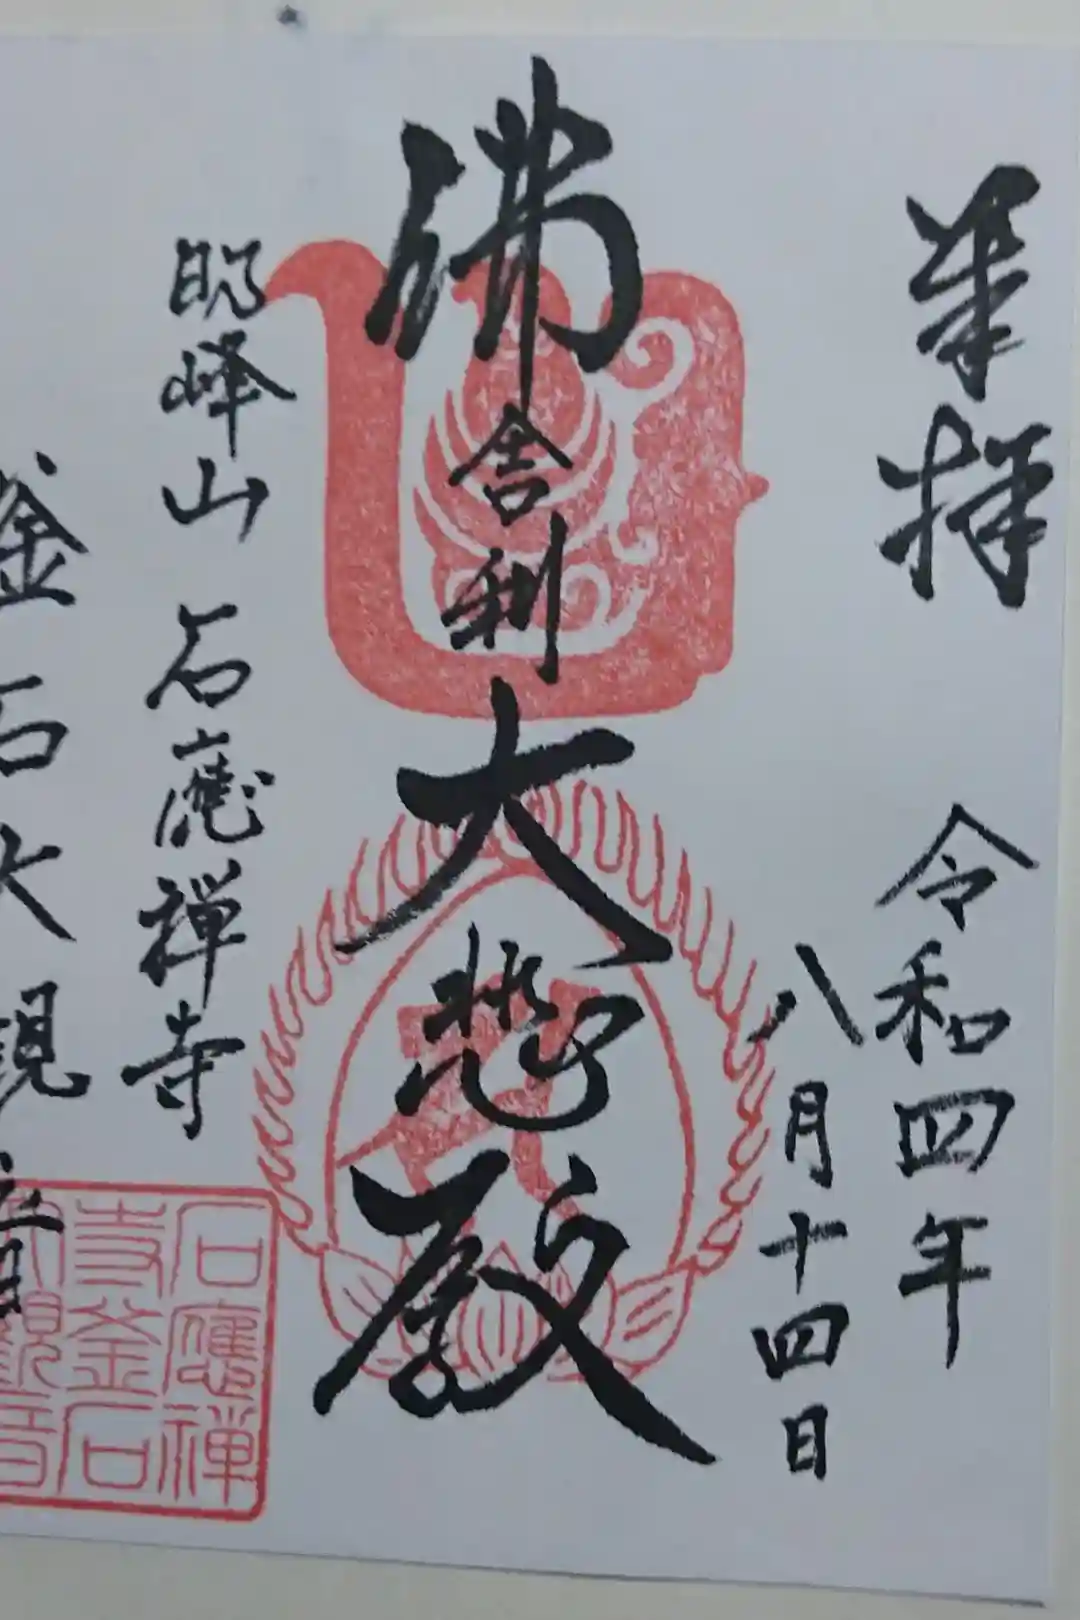 奉拝
令和四年
八月十四日
佛舎利大悲殿
明峰山 石應禅寺
釜石大観音
石應禅
寺釜石
大観音